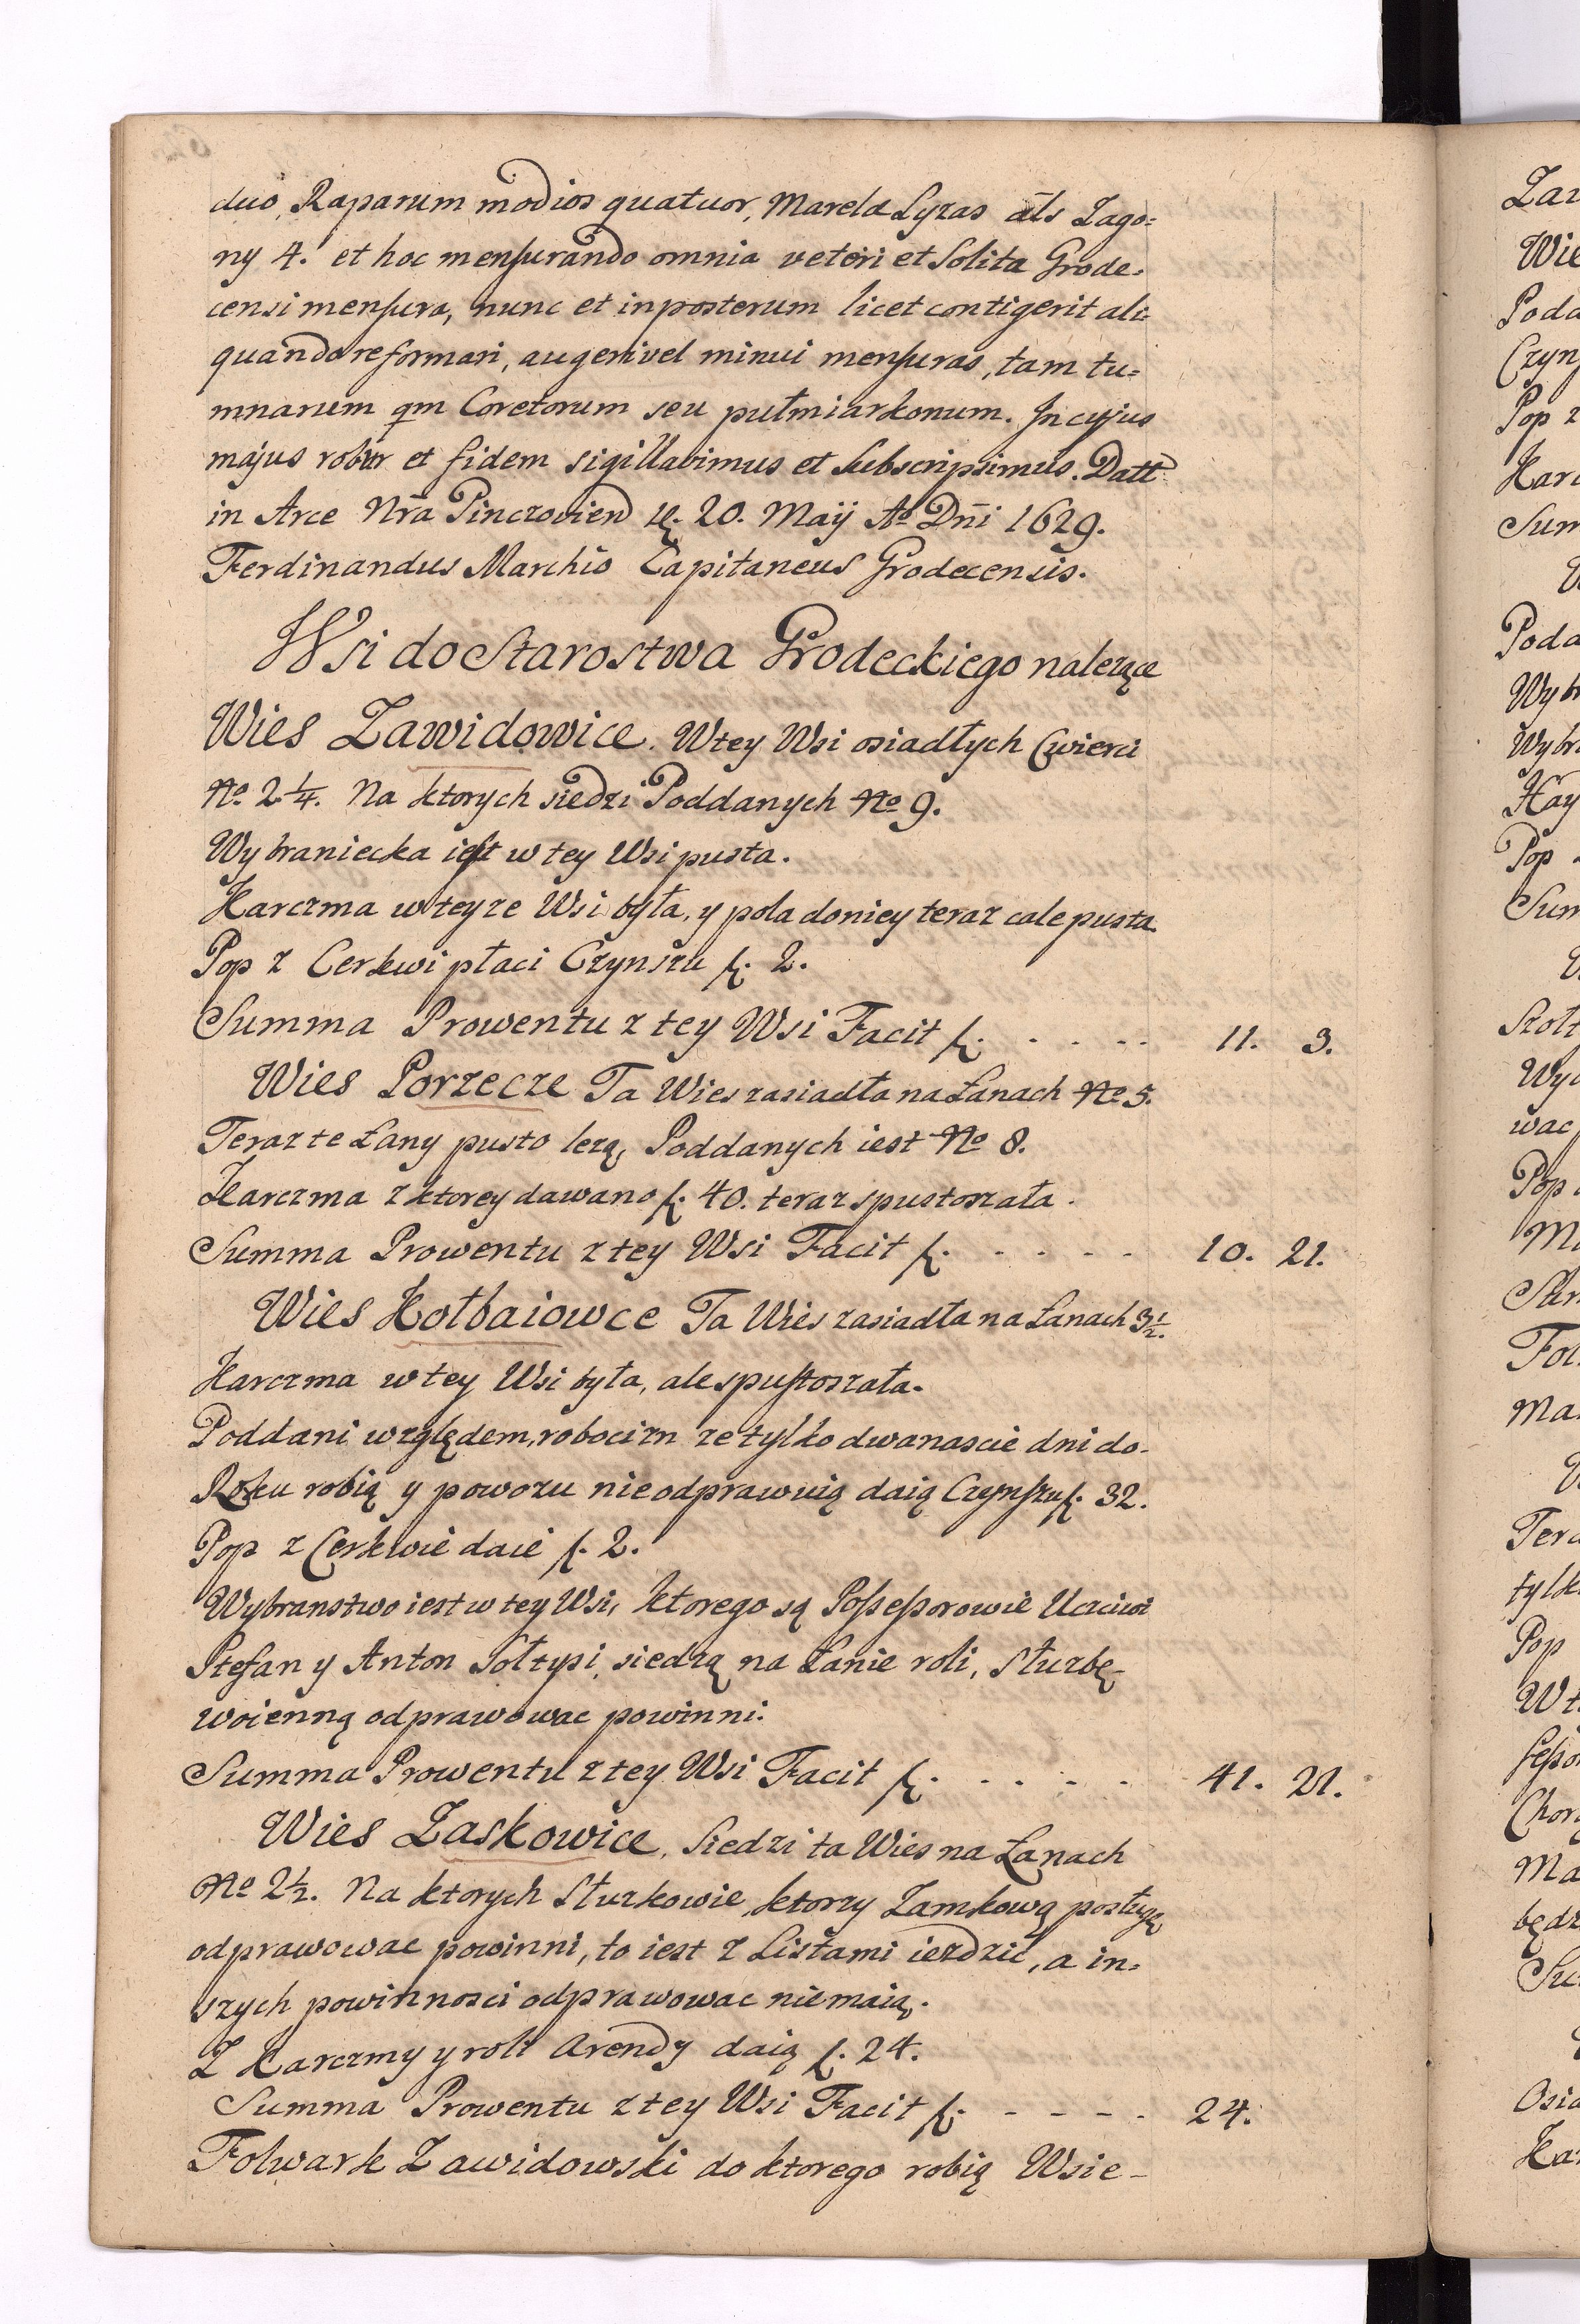 duo, Raparum modios quatuor, Marela Lyzas als Zago=
ny 4. et hoc mensurando omnia veteri et Solita Grode=
censi mensura, nunc et inposterum licet contigerit ali=
quando reformari, augeri vel minui mensuras, tam tu=
mnarum qm Coretorum seu pułmiarkonum. In cujus
majus robur et fidem sigillavimus et Subscripsimus. Datt
in Arce Nrã Pinczovien 20. Maij Ao Dñi 1629.
Ferdinandus Marchio Capitaneus Grodecensis.
Wsi do Starostwa Grodeckiego nalezące
Wies Zawidowice. W tey Wsi osiadłych Cwierci
No 2 1/4. Na ktorych siedzi Poddanych No 9.
Wybraniecka iest w tey Wsi pusta.
Karczma w teyze Wsi była, y pola do niey teraz cale pusta
Pop z Cerkwi płaci Czynszu f. 2.
Summa Prowentu z tey Wsi Facit f. - - - - 11. 3.
Wies Porzecze Ta Wies zasiadła na Łanach No 5.
Teraz te Łany pusto lezą, Poddanych iest No 8.
Karczma z ktorey dawano f. 40. teraz spustoszała.
Summa Prowentu z tey Wsi Facit f. - - - - 10. 21.
Wies Kołbaiowce Ta Wies zasiadła na Łanach 3 1/2.
Karczma w tey Wsi była, ale spustoszała.
Poddani względem robocizn ze tylko dwanascie dni do-
Roku robią y powozu nieodprawuią daią Czynszu f. 32.
Pop z Cerkwie daie f. 2.
Wybranstwo iest w tey Wsi, ktorego są Possessorowie Uczciwi
Stefan y Anton Sołtysi, siedzą na Łanie roli, Służbę
woienną odprawowac powinni.
Summa Prowentu z tey Wsi Facit f. - - - - 41. 21.
Wies Zaskowice. Siedzi ta Wies na Łanach
No 2 1/2. Na ktorych Służkowie, ktorzy Zamkową posługę
odprawowac powinni, to iest z Listami iezdzić, a in=
szych powinnosci odprawowac niemaią.
Z Karczmy y roli Arendy daią f. 24.
Summa Prowentu z tey Wsi Facit f. - - - - 24.
Folwark Zawidowski do ktorego robią Wsie-